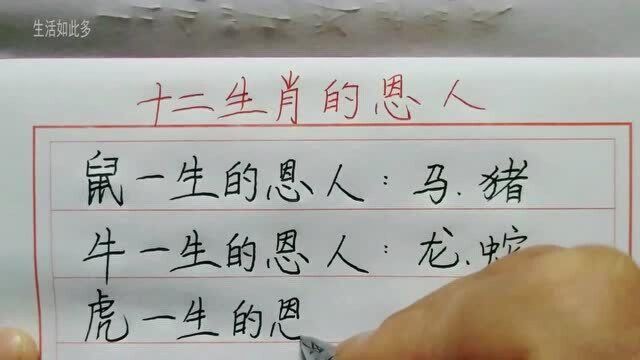 生活如此多
十二生肖的恩人
鼠一生的恩人:马.猪
牛一生的恩人:龙.蛇
虎一生的恩